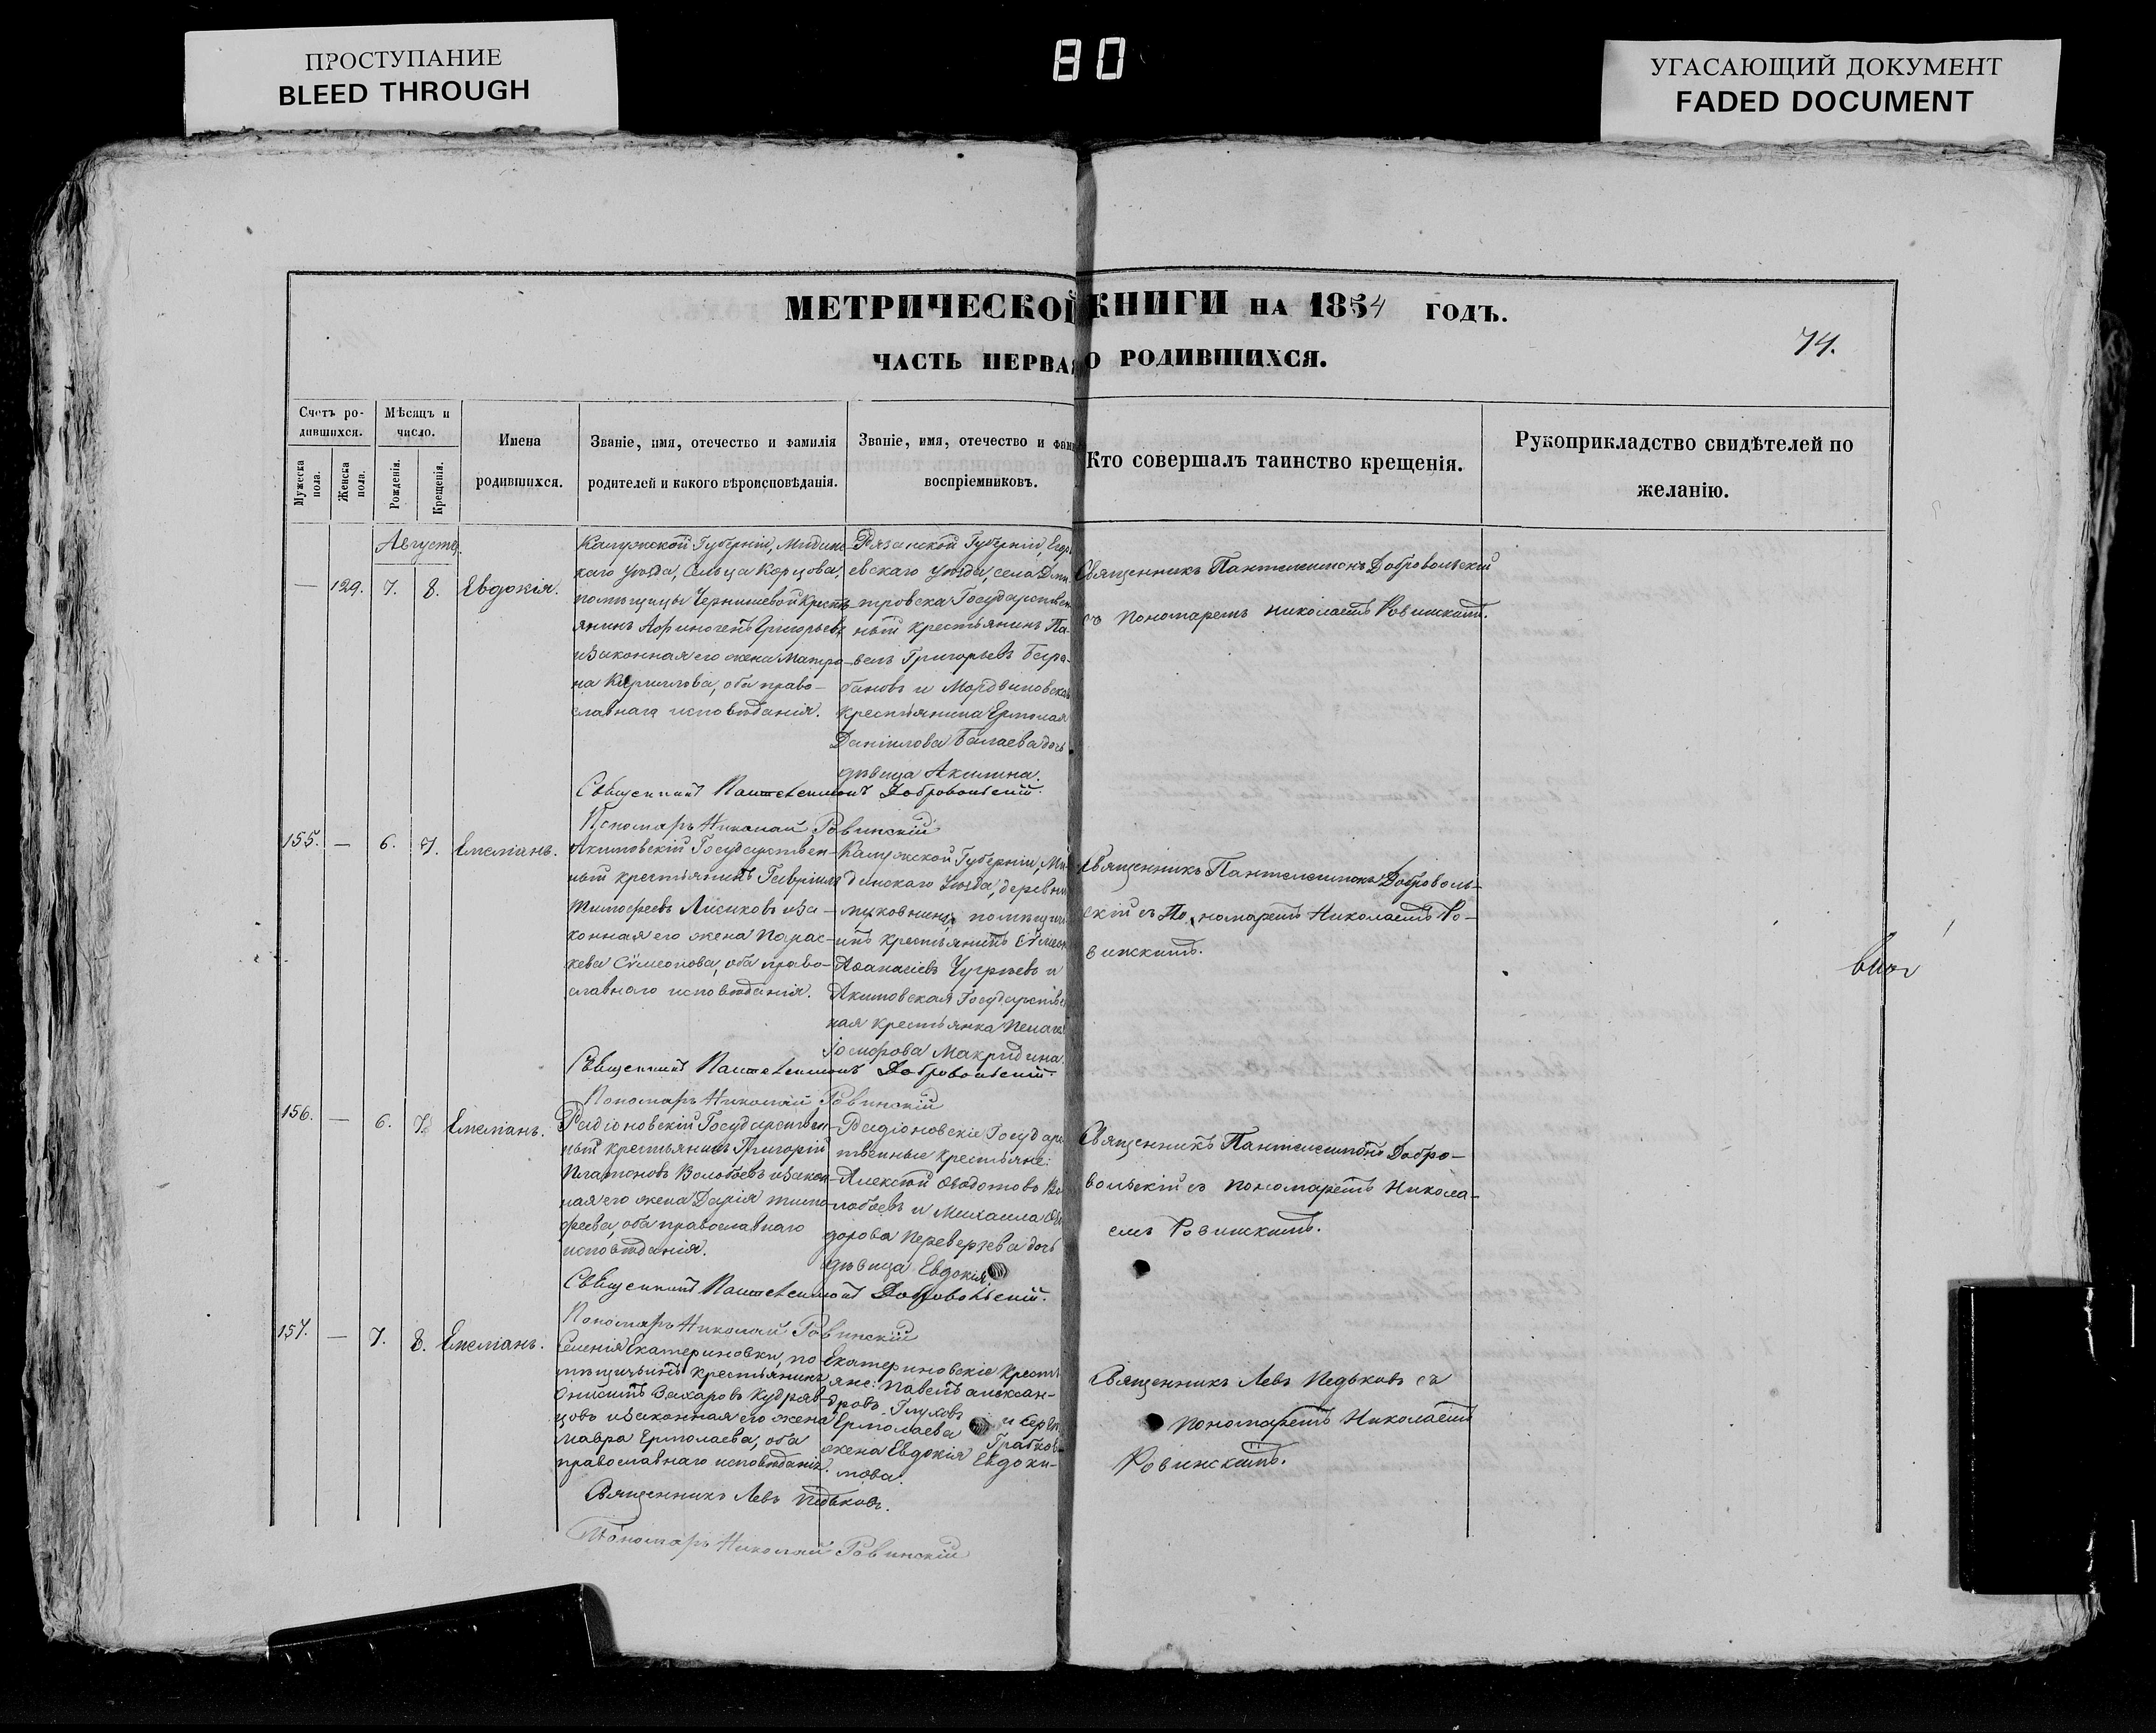 ПРОСТУПАНИЕ
BLEED THROUGH
80
УГАСАЮЩИЙ ДОКУМЕНТ
FADED DOCUMENT
МЕТРИЧЕСКОЙ КНИГИ НА 1854 ГОДЪ.
74.
ЧАСТЬ ПЕРВАЯ О РОДИВШИХСЯ.
Счетъ ро-
дившихся.
Мужеска
пола.
Женска
пола.
Мѣсяцъ и
число.
Рожденія.
Крещенія.
Имена
родившихся.
Званіе, имя, отечество и фамилія
родителей и какого вѣроисповѣданія.
Званіе, имя, отечество и фам
воспріемниковъ.
Кто совершалъ таинство крещенія.
Рукоприкладство свидѣтелей по
желанію.
Августъ.
— 129. 7. 8. Евдокія.
Калужской Губерніи, Мидынс
каго уѣзда, сельца Корцова,
помѣщицы Чернышевой Кресть
янинъ Афиногенъ Григорьевъ
и законная его жена Матро-
на Кирилова, оба право-
славнаго исповѣданія.
Рязанской Губерніи, Егорь
евскаго уѣзда, села Дми-
тровска Государствен
ный крестьянинъ Па-
велъ Григорьевъ Бара-
бановъ и Мордвиновскаго
крестьянина Ермолая
Даніилова Балаева дочь
дѣвица Акилина.
Священникъ Пантелеимонъ Добровольскій
съ Пономаремъ Николаемъ Ровинскимъ.
Священникъ Пантелеимонъ Добровольскій.
Пономарь Николай Ровинскій
155. — 6. 7. Емеліанъ.
Акимовскій Государствен-
ный крестьянинъ Гавріилъ
Тимофеевъ Лисиковъ и за-
конная его жена Парас-
кева Сѵмеонова, оба право-
славнаго исповѣданія.
Калужской Губерніи, Ми-
динскаго уѣзда, деревни
помѣщи
чій крестьянинъ Сѵмеонъ
Аѳанасіевъ Чугуевъ и
Акимовская Государствен
ная крестьянка Пелагея
Іосифова Макридина.
Священникъ Пантелеимонъ Доброволь-
скій съ Пономаремъ Николаемъ Ро-
винскимъ.
Священникъ Пантелеимонъ Добровольскій.
Пономарь Николай Ровинскій
156. — 6. 7. Емеліанъ.
Радіоновскій Государствен
ный крестьянинъ Григорій
Платоновъ Волобоевъ и закон
ная его жена Дарія Тимо-
феева, оба православнаго
исповѣданія.
Радіоновскіе Государс
твенные крестьяне:
Алексѣй Ѳедотовъ Во-
лобоевъ и Михаила Ѳе
дорова Переверзева дочь
дѣвица Евдокія.
Священникъ Пантелеимонъ Добро-
вольскій съ пономаремъ Никола-
емъ Ровинскимъ.
Священникъ Пантелеимонъ Добровольскій.
Пономарь Николай Ровинскій
157. — 7. 8. Емеліанъ.
Селенія Екатериновки, по
мѣщичьий крестьянинъ
Онисимъ Захаровъ Кудряв-
цовъ и законная его жена
Мавра Ермолаева, оба
православнаго исповѣданія.
Екатериновскіе кресть
яне: Павелъ Алексан-
дровъ Глуховъ и Сергѣя
Ермолаева
жена Евдокія Евдоки-
мова.
Священникъ Левъ Педьковъ съ
пономаремъ Николаемъ
Ровинскимъ.
Священникъ Левъ Педьковъ.
Пономарь Николай Ровинскій